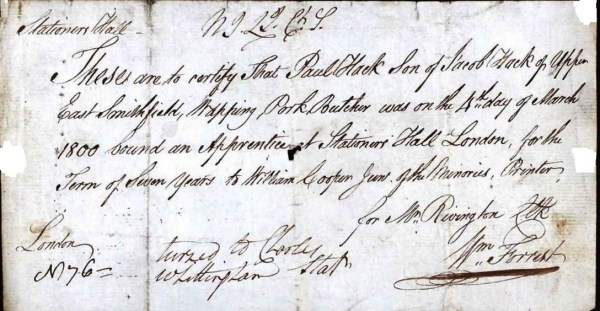 Stationers Hall
Theses are to certify That Paul Hack Son of Jacob Hack of Upper
East Smithfield, Wapping, Pork Butcher was on the 4th day of March
1800 bound an Apprentice at Stationers Hall London, for the
Term of Seven Years to William Cooper Junr. of the Minories, Printer
for Mr. Rivington Clk
London turned to Charles Wm. Forrest
No 76 Whittingham